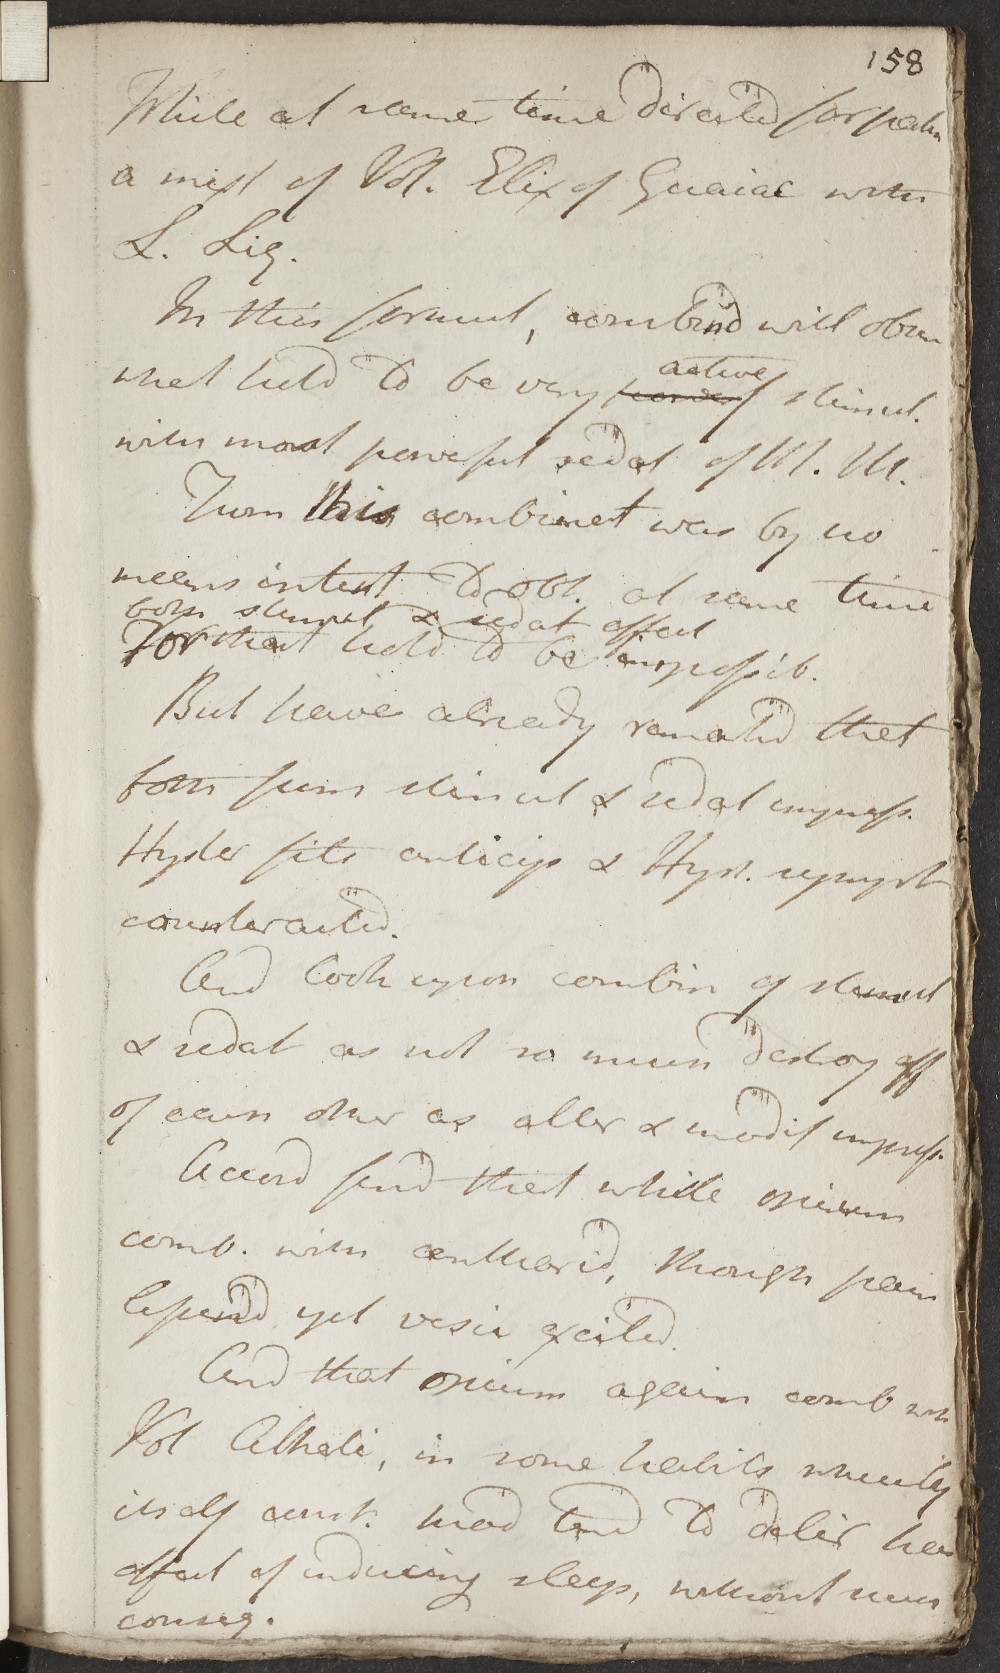 158
While at same time directed for patn
a mixt of Vol. Elix of Guaiac with
L. Liq.
In this formul, combind will obsn
what held to be very powerf active stimul.
with most powerful sedat of M. M.
Turn this combinat was by no
means intent to obt. at same time
both stimul & sedat effect
For that held to be impossib.
But have already remarkd that
both from stimul & sedat impress.
Hyster fits anticip & Hyst. sympt
counteracted.
And look upon combin of stimul
& sedat as not so much destroy eff
of each other as alter & modif impress.
Accord find that while opium
comb. with cantharid, though pain
lessend yet vesic excited.
And that opium again comb with
Vol Alkali, in some habits when by
itself const. had tend to delir has
effect of inducing sleep, without such
conseq.